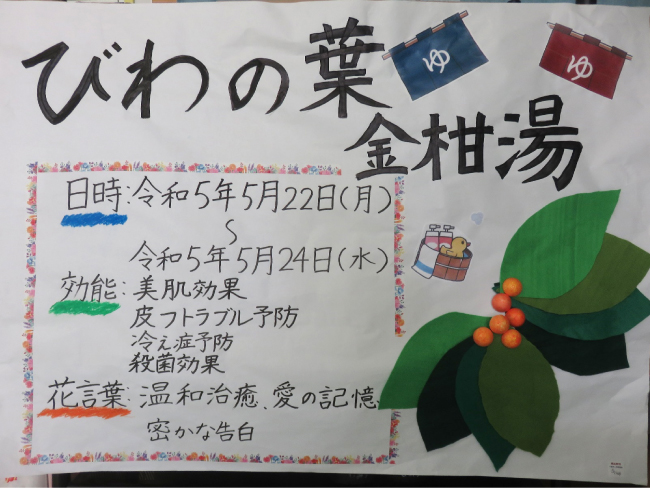 びわの葉
金柑湯
ゆ
ゆ
日時:令和5年5月22日(月)
～
令和5年5月24日(水)
効能:美肌効果
皮フトラブル予防
冷え症予防
殺菌効果
花言葉:温和治癒、愛の記憶
密かな告白